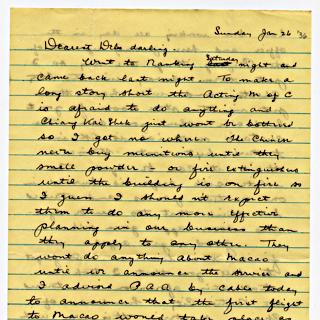 Sunday Jan 26 '36
Dearest Debs darling.
I went to Nanking Saturday night and
came back last night. To make a
long story short the Acting M of C
is afraid to do anything and
Chiang Kai Shek just wont be bothered
so I got no where. The Chinese
never buy munitions until they
smell powder - or fire extinguishers
until the building is on fire so
I guess I should n't expect
them to do any more effective
planning in our business than
they apply to any other. They
wont do anything about Macao
until we announce the service and
I advised P.A.A by cable today
to announce that the first flight
to Macao would take place as